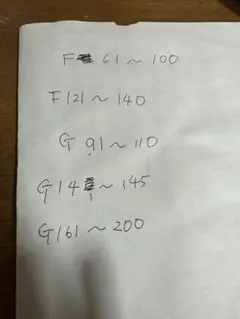 F 61～100
F121～140
G 91～110
G141～145
G161～200